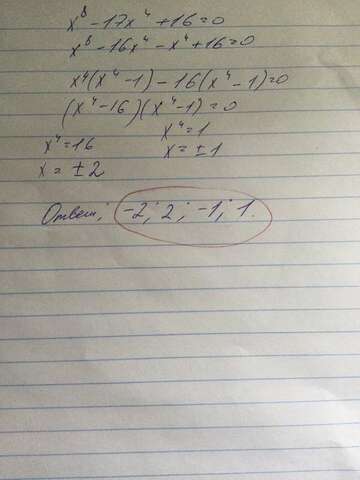 x⁸ - 17x⁴ + 16 = 0
x⁸ - 16x⁴ - x⁴ + 16 = 0
x⁴(x⁴ - 1) - 16(x⁴ - 1) = 0
(x⁴ - 16)(x⁴ - 1) = 0
x⁴ = 16 x⁴ = 1
x = ± 2 x = ± 1
Ответ: -2; 2; -1; 1.